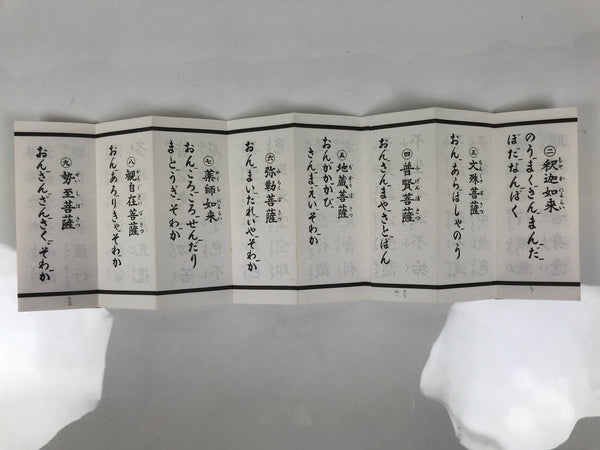 ㊁釈迦如来
のうまくさんまんだ
ぼだなんばく
㊂文殊菩薩
おんあらはしゃのう
㊃普賢菩薩
おんさんまやさとばん
㊄地蔵菩薩
おんかかかび
さんまえいそわか
㊅弥勒菩薩
おんまいたれいやそわか
㊆薬師如来
おんころころせんだり
まとうぎそわか
㊇観自在菩薩
おんあろりきゃそわか
㊈勢至菩薩
おんさんざんさくそわか